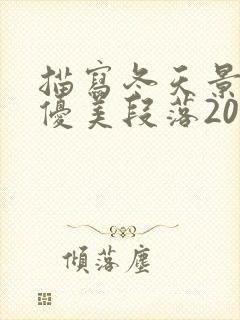 描寫冬天景
優美段落20
傾落塵